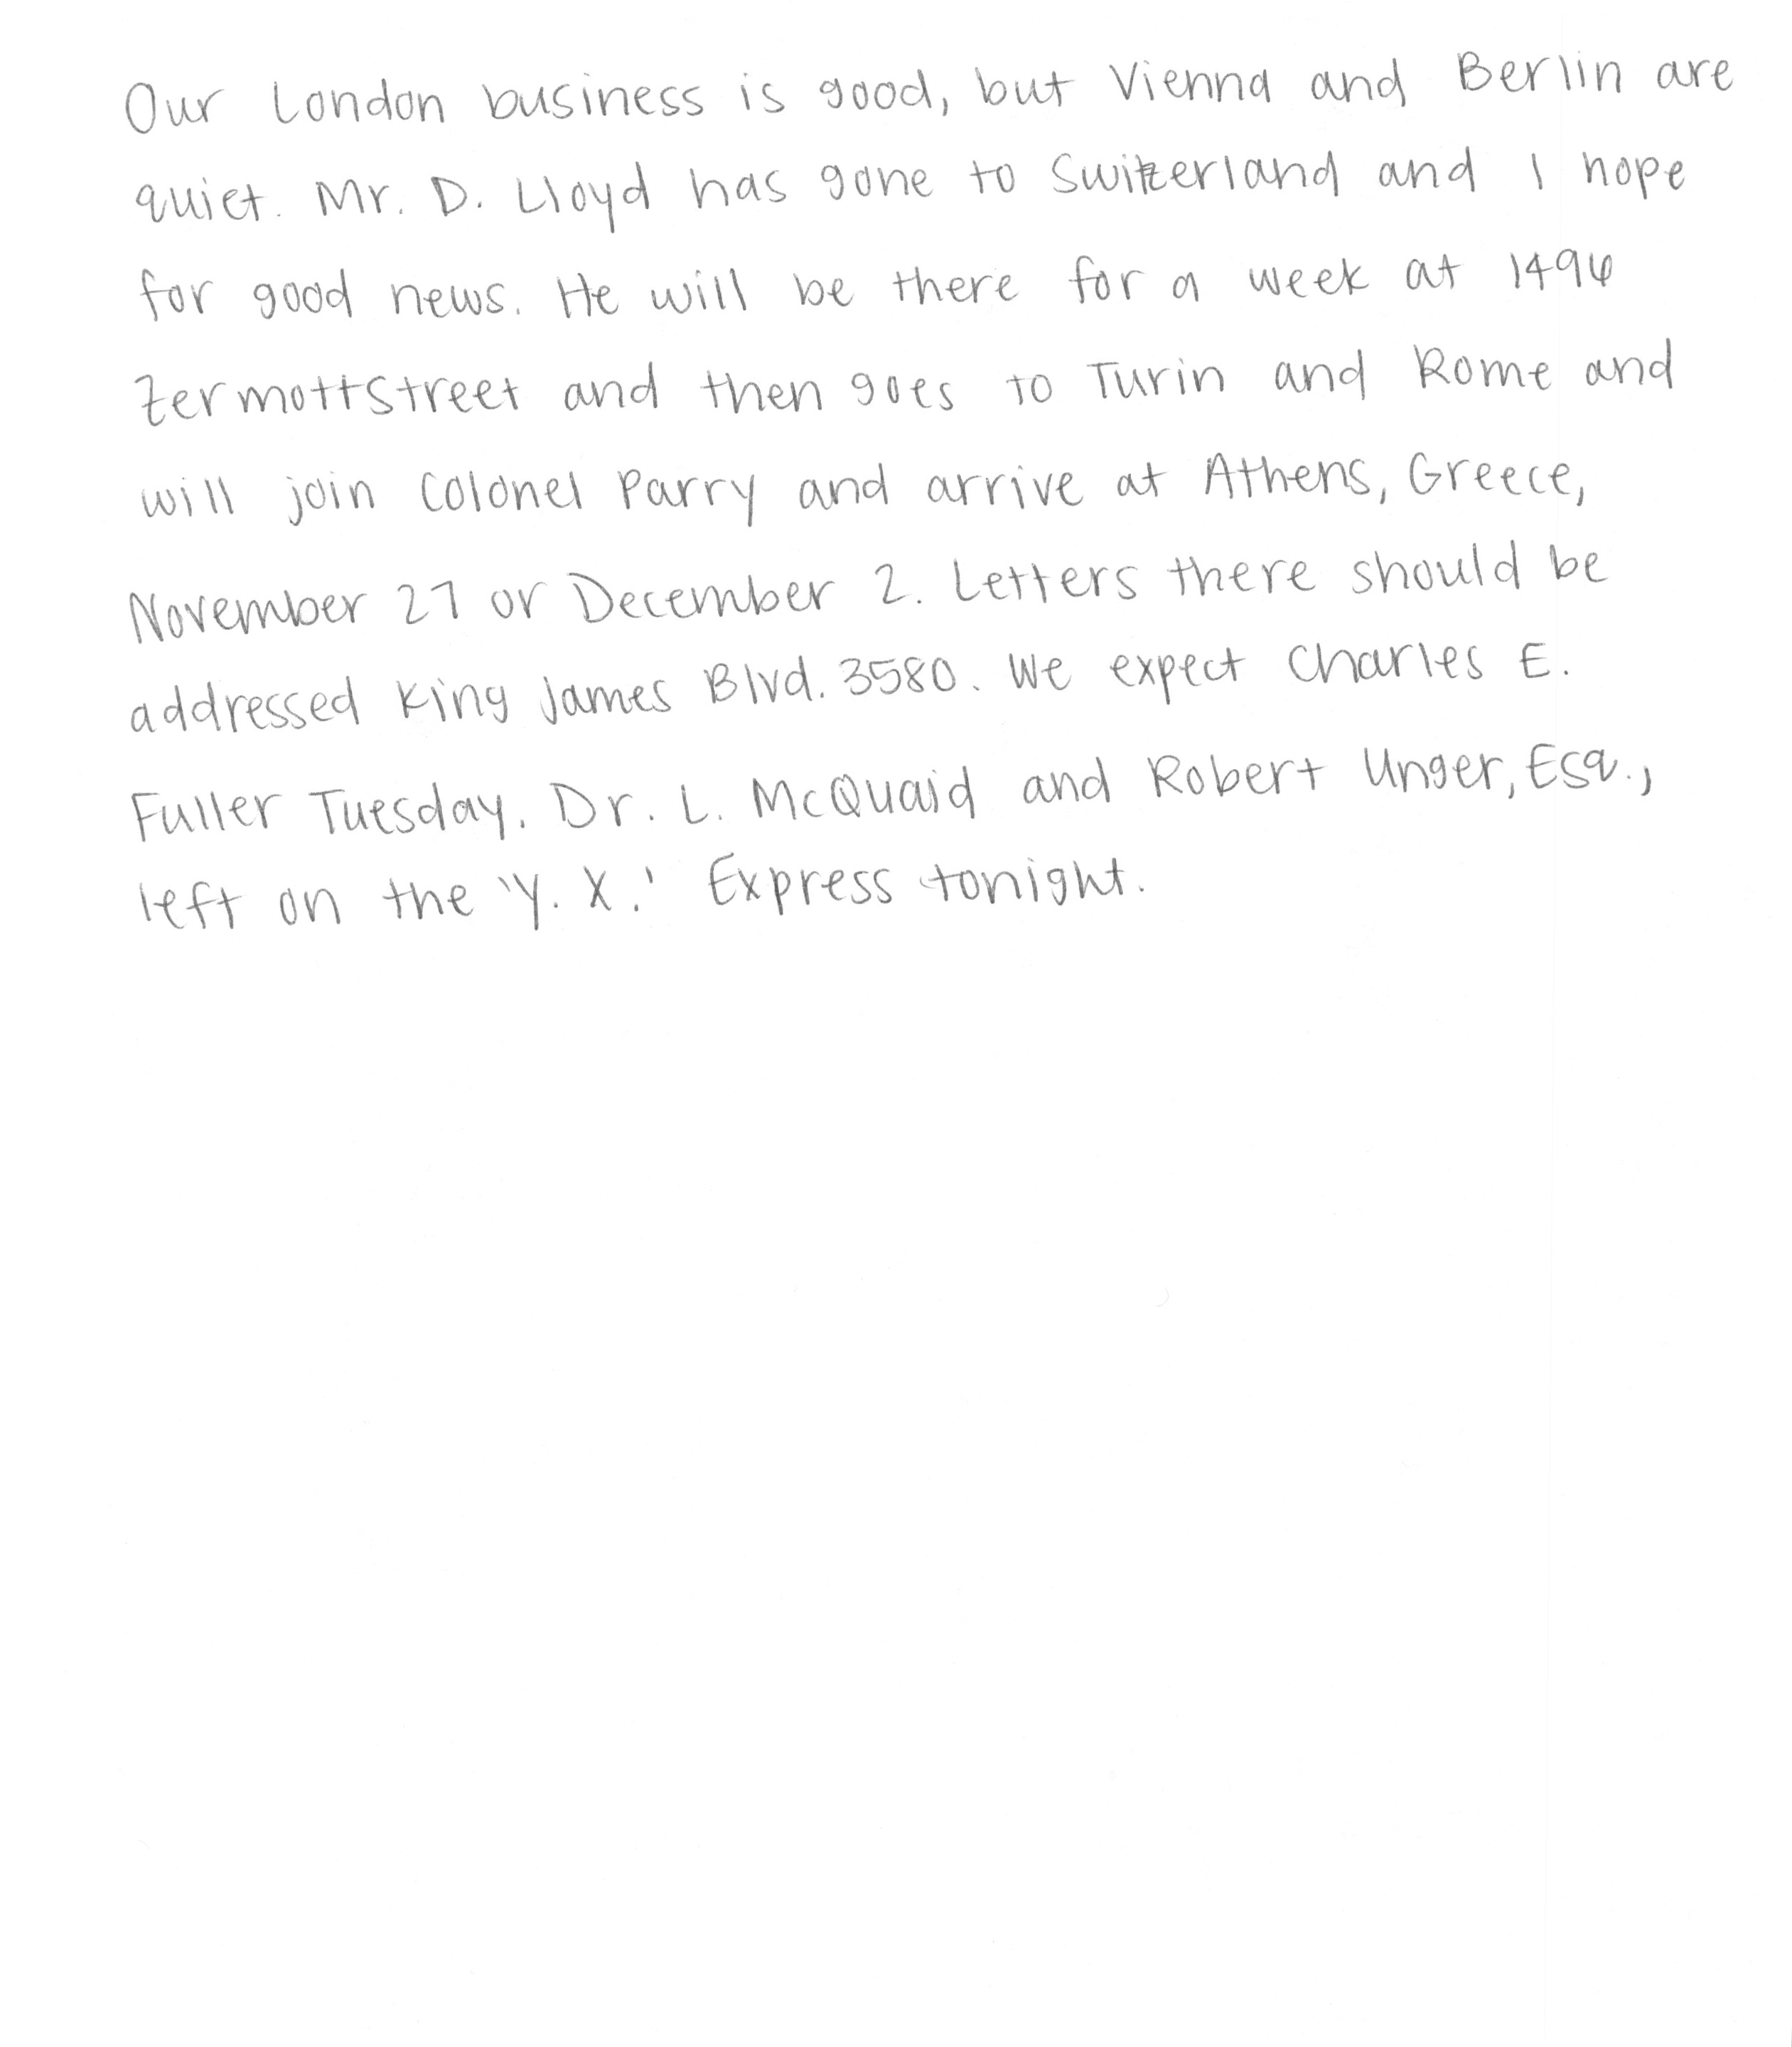 Our London business is good, but Vienna and Berlin are
quiet. Mr. D. Lloyd has gone to Switzerland and I hope
for good news. He will be there for a week at 1496
Zermott Street and then goes to Turin and Rome and
will join Colonel Parry and arrive at Athens, Greece,
November 27 or December 2. Letters there should be
addressed King James Blvd. 3580. We expect Charles E.
Fuller Tuesday. Dr. L. McQuaid and Robert Unger, Esq.,
left on the 'Y. X.' Express tonight.